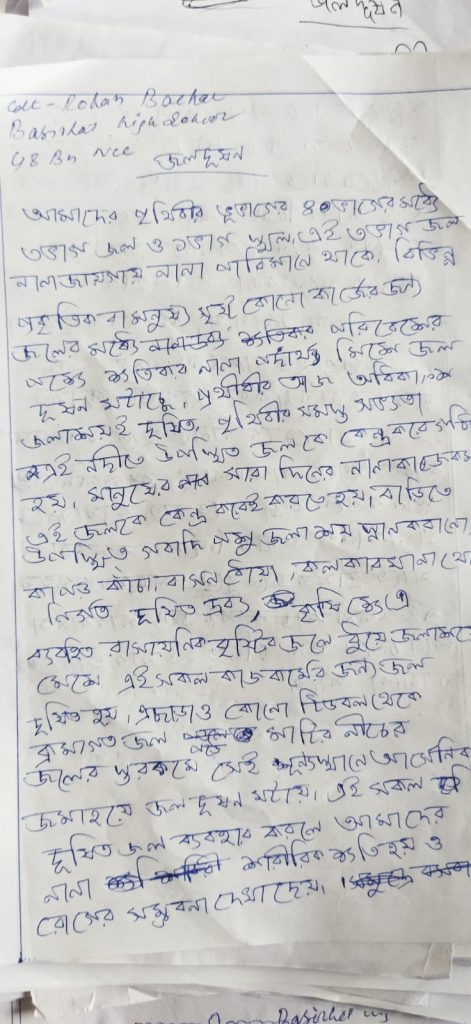 জলদূষন
Cdt - Rohan Bachar
Basirhat High School
48 Bn Ncc
জলদূষন
আমাদের পৃথিবীর ভূভাগের ৪ ভাগের মধ্যে
৩ভাগ জল ও ১ভাগ স্থল, এই ৩ভাগ জল
নানা জায়গায় নানা পরিমানে থাকে, বিভিন্ন
প্রাকৃতিক বা মনুষ্য সৃষ্ট কোনো কাজের জন্য
জলের মধ্যে পরিবেশের
পক্ষে ক্ষতিকার নানা পদার্থ মিশে জল
দূষন ঘটাচ্ছে, পৃথিবীর আজ অধিকাংশ
জলাশয়ই দূষিত, পৃথিবীর সমস্ত সভ্যতা
এই নদীতে উপস্থিত জলকে কেন্দ্র করে
হয়, মানুষের সারা দিনের নানা কাজকর্ম
এই জলকে কেন্দ্র করেই করতে হয়, বাড়িতে
উপস্থিত গবাদি পশু জলাশয় স্নান করানো,
কাপড় কাঁচা, বাসন ধোয়া, কলকারখানা থেকে
নির্গত দূষিত দ্রব্য, কৃষি ক্ষেত্রে
ব্যবহিত রাসায়নিক বৃষ্টির জলে ধুয়ে জলাশয়ে
মেশে এই সকল কাজকর্মের জন্য জল
দূষিত হয়, এছাড়াও কোনো টিউবল থেকে
ক্রমাগত জল মাটির নীচের
জলের স্তর কমে সেই শূন্যস্থানে আর্সেনিক
জমা হয়ে জল দূষন ঘটায়, এই সকল
দূষিত জল ব্যবহার করলে আমাদের
নানা শারীরিক ক্ষতি হয় ও
রোগের সম্ভবনা দেখা দেয়,
Basirhat